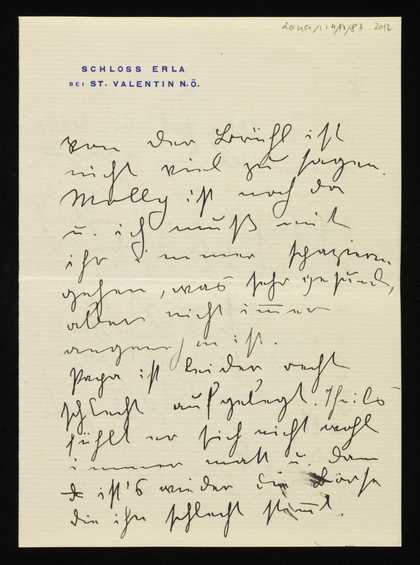 SCHLOSS ERLA
BEI ST. VALENTIN N.Ö.
von der Brühl ist
nicht viel zu sagen.
Molly ist noch da
u. ich muß mit
ihr immer spazieren
gehen, was sehr gesund,
aber nicht immer
angenehm ist.
Papa ist leider recht
schlecht aufgelegt. Theils
fühlt er sich nicht wohl
immer matt u. dann
ist's wieder die Börse
die ihn schlecht stimmt.